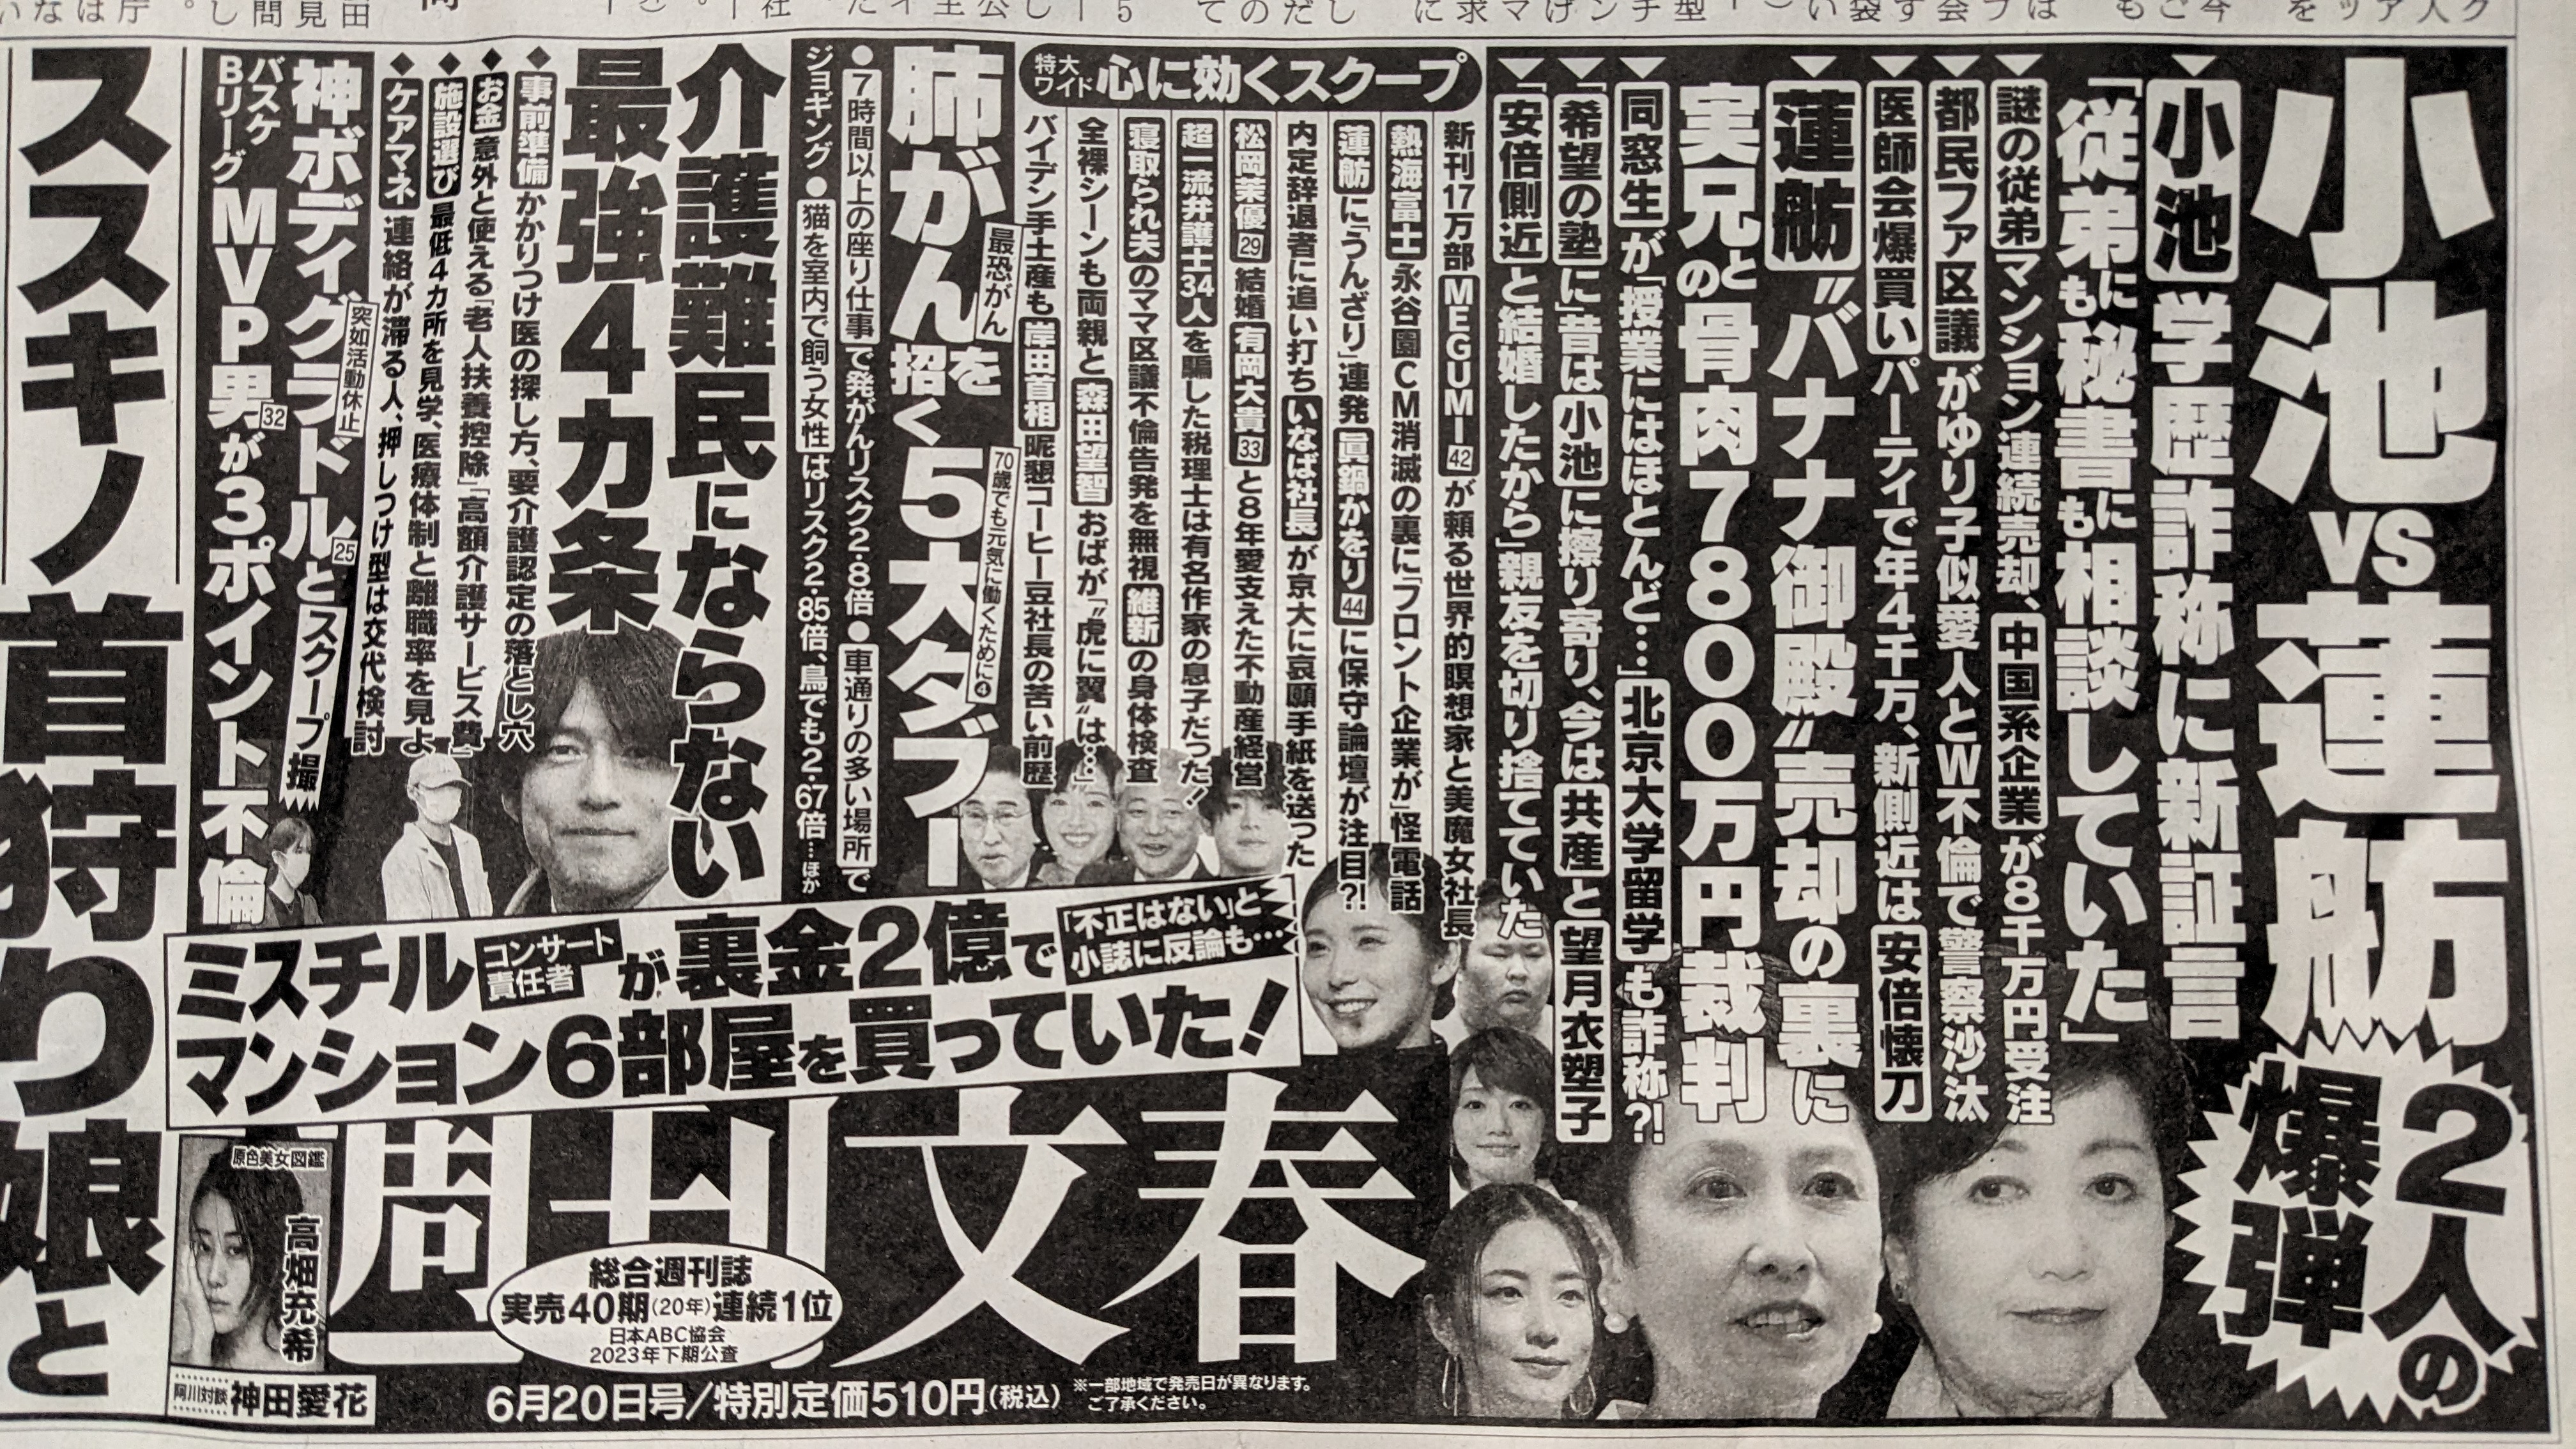 小池vs蓮舫
2人の
爆弾
小池 学歴詐称に新証言
「従弟にも秘書にも相談していた」
謎の従弟マンション連続売却、中国系企業が8千万円受注
都民ファ区議がゆり子似愛人とW不倫で警察沙汰
医師会爆買いパーティで年4千万、新側近は安倍懐刀
蓮舫〝バナナ御殿〟売却の裏に
実兄との骨肉7800万円裁判
同窓生が「授業にはほとんど…」北京大学留学も詐称?!
「希望の塾」に昔は小池に擦り寄り、今は共産と望月衣塑子
「安倍側近と結婚したから」親友を切り捨てていた
特大
ワイド
心に効くスクープ
新刊17万部MEGUMI42が頼る世界的瞑想家と美魔女社長
熱海富士 永谷園CM消滅の裏に「フロント企業が」怪電話
蓮舫に「うんざり」連発 眞鍋かをり44に保守論壇が注目?!
内定辞退者に追い打ち いなば社長が京大に哀願手紙を送った
松岡茉優29結婚 有岡大貴33と8年愛支えた不動産経営
超一流弁護士34人を騙した税理士は有名作家の息子だった!
寝取られ夫のママ区議不倫告発を無視 維新の身体検査
全裸シーンも両親と 森田望智 おばが「〝虎に翼〟は…」
バイデン手土産も 岸田首相 昵懇コーヒー豆社長の苦い前歴
最恐がん
肺がんを招く5大タブー
70歳でも元気に働くために❹
●7時間以上の座り仕事で発がんリスク2・8倍●車通りの多い場所で
ジョギング●猫を室内で飼う女性はリスク2・85倍、鳥でも2・67倍…ほか
介護難民にならない
最強4カ条
◆事前準備 かかりつけ医の探し方、要介護認定の落とし穴
◆お金 意外と使える「老人扶養控除」「高額介護サービス費」
◆施設選び 最低4カ所を見学、医療体制と離職率を見よ
◆ケアマネ 連絡が滞る人、押しつけ型は交代検討
突如活動休止
神ボディグラドル25とスクープ撮
バスケ
Bリーグ
MVP男32が3ポイント不倫
ススキノ首狩り娘と
ミスチル
コンサート
責任者
が裏金2億で
「不正はない」と
小誌に反論も…
マンション6部屋を買っていた!
週刊文春
原色美女図鑑
高畑充希
阿川対談 神田愛花
総合週刊誌
実売40期(20年)連続1位
日本ABC協会
2023年下期公査
6月20日号/特別定価510円(税込)
※一部地域で発売日が異なります。
ご了承ください。